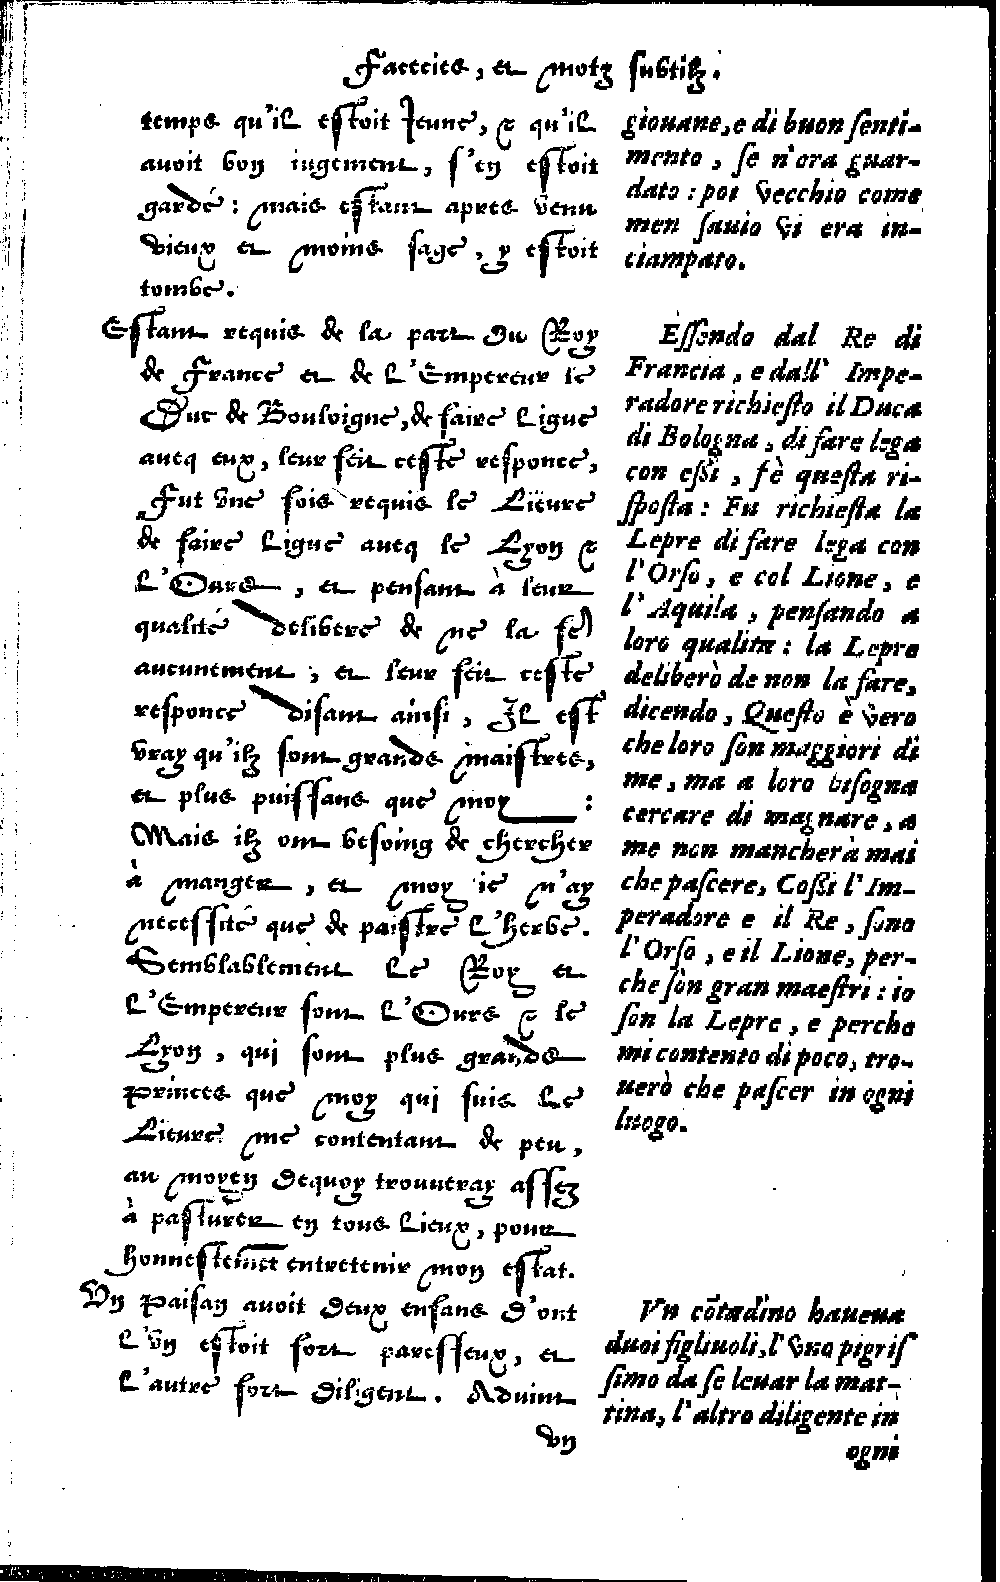 Facecies, et motz subtilz.
temps qu'il estoit Jeune, & qu'il
auoit bon iugement, s'en estoit
gardé: mais estant apres venu
vieux et moins sage, y estoit
tombé.
Estant requis de la part du Roy
de France et de L'Empereur le
Duc de Bouloigne, de faire Ligue
aueq eux, leur feit ceste responce,
Fut vne fois requis le Lieure
de faire Ligue aueq le Lyon &
L'Ours, et pensant à leur
qualité delibere de ne la fe
aucunement; et leur feit ceste
responce disant ainsi, Il est
vray qu'ilz sont grands maistres,
et plus puissans que moy :
Mais ilz ont besoing de chercher
à manger, et moy ie n'ay
necessité que de paistre L'herbe.
Semblablement Le Roy et
L'Empereur sont L'Ours & le
Lyon, qui sont plus grands
princes que moy qui suis Le
Lieure me contentant de peu,
au moyen dequoy trouueray assez
à pasturer en tous Lieux, pour
honnestemēt entretenir mon estat.
Vn paisan auoit deux enfans d'ont
L'vn estoit fort paresseux, et
L'autre fort diligent. Aduint
vn
giouane, e di buon senti-
mento, se n'ora guar-
dato: poi vecchio come
men sauio vi era in-
ciampato.
Essendo dal Re di
Francia, e dall' Impe-
radore richiesto il Duca
di Bologna, di fare lega
con essi, fè questa ri-
sposta: Fu richiesta la
Lepre di fare lega con
l'Orso, e col Lione, e
l'Aquila, pensando a
loro qualita: la Lepre
deliberò de non la fare,
dicendo, Questo è vero
che loro son maggiori di
me, ma a loro bisogna
cercare di magnare, a
me non mancherà mai
che pascere, Cossi l'Im-
peradore e il Re, sono
l'Orso, e il Lione, per-
che sòn gran maestri: io
son la Lepre, e perche
mi contento di poco, tro-
uerò che pascer in ogni
luogo.
Vn cōtadino haueua
duoi figliuoli, l'vno pigris
simo da se leuar la mat-
tina, l'altro diligente in
ogni